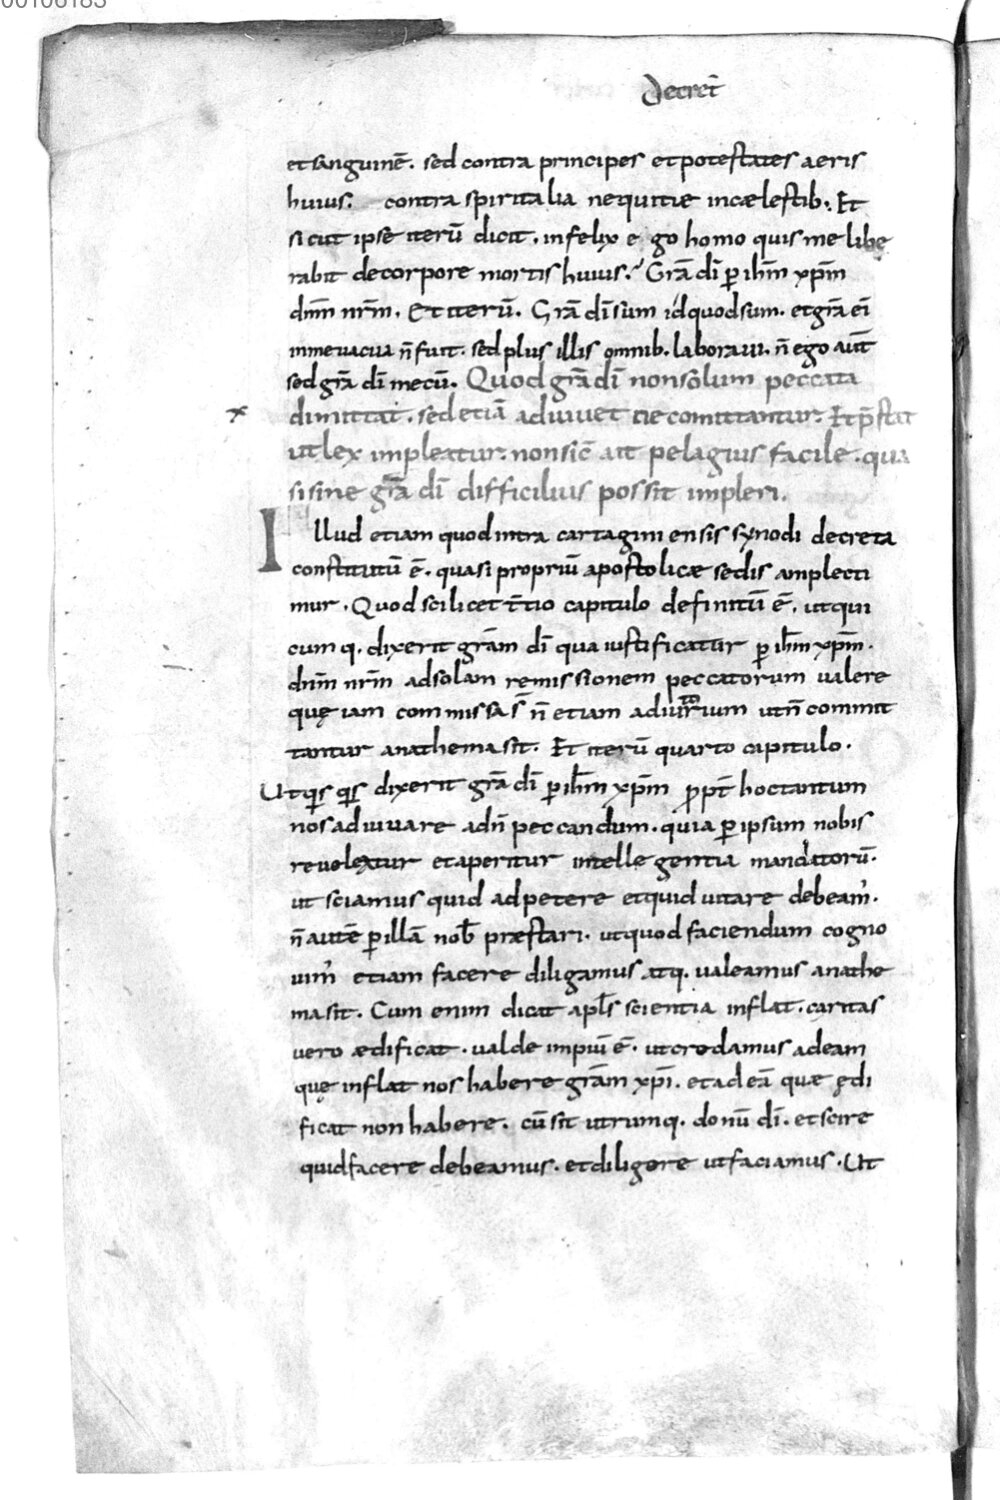 00106183
Decret̄
et sanguinē. sed contra principes et potestates aeris
huius. contra spiritalia nequitie in cælestib. Et
sicut ipse iterū dicit. infelix ego homo quis me libe
rabit de corpore mortis huius? Grā dī p̱ ihm̄ xpm̄
dnm̄ nrm̄. Et iterū. Grā dī sum id quod sum. et grā eī
in me vacua n̄ fuit. sed plus illis omnib. laboraui. n̄ ego aut̄
sed grā dī mecū. Quod grā dī non solum peccata
x dimittat. sed etiā adiuuet ne comittantur. Et p̄stat
ut lex impleatur. non sic̄ ait pelagius facile. qua
si sine grā dī difficilius possit impleri.
Illud etiam quod intra cartaginiensis synodi decreta
constitutū ē. quasi propriū apostolicæ sedis amplecti
mur. Quod scilicet t̄tio capitulo definitū ē. ut qui
cumq. dixerit grām dī qua iustificatur p̱ ihm̄ xpm̄.
dnm̄ nrm̄ ad solam remissionem peccatorum ualere
quę iam commissa s̄ n̄ etiam ad adiutorium ut n̄ commit
tantur anathema sit. Et iterū quarto capitulo.
Ut qs̱ qs̱ dixerit grā dī p̱ ihm̄ xpm̄ ppt̄ hoc tantum
nos adiuuare ad n̄ peccandum. quia p̱ ipsum nobis
reueletur et aperitur intellegentia mandatorū.
ut sciamus quid adpetere et quid uitare debeam̄.
n̄ autē p̱ illā nob̄ præstari. ut quod faciendum cogno
uim̄ etiam facere diligamus atq. ualeamus anathe
ma sit. Cum enim dicat apls̄ scientia inflat. caritas
uero ædificat. ualde impiū ē. ut credamus ad eam
quę inflat nos habere grām xpī. et ad eā quæ ędi
ficat non habere. cū sit utrumq. donū dī. et scire
quid facere debeamus. et diligere ut faciamus. Ut